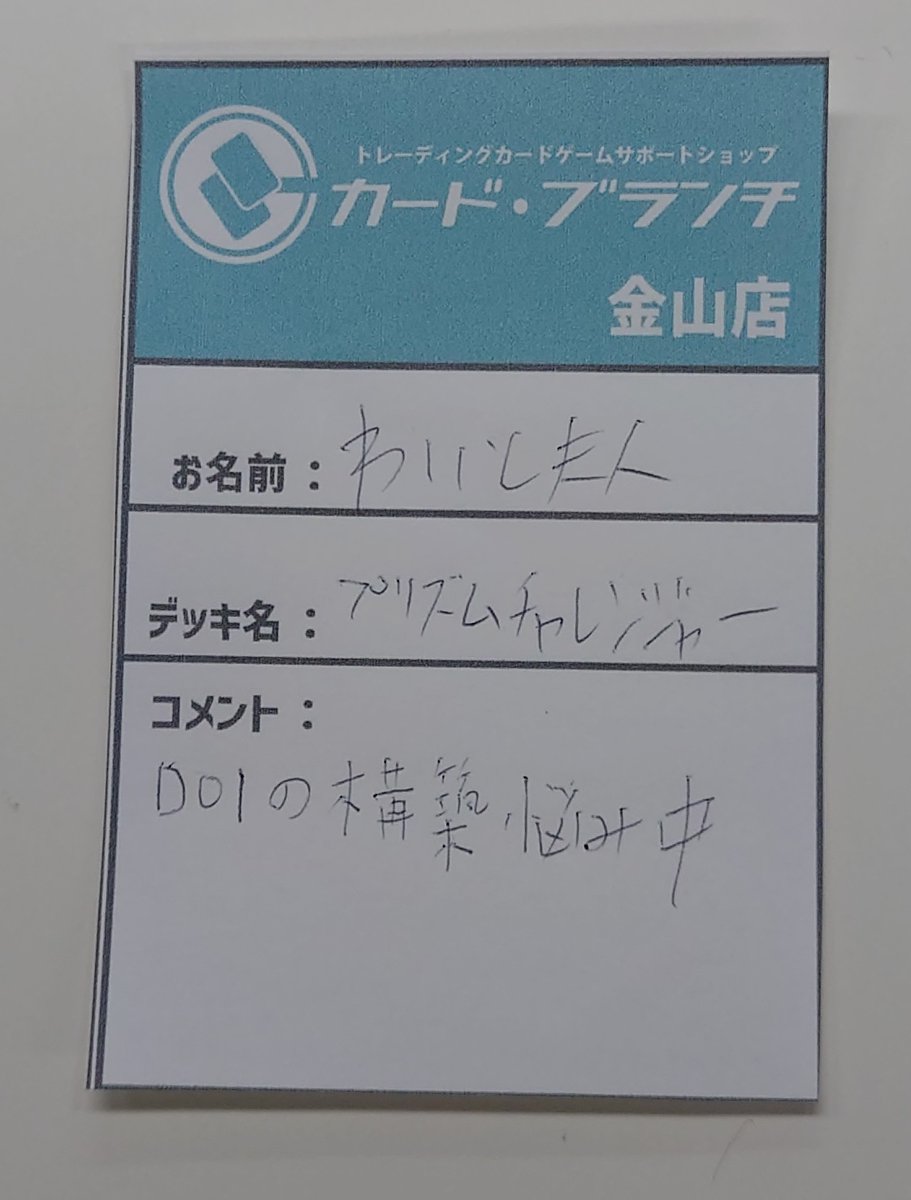 トレーディングカードゲームサポートショップ
カード・ブランチ
金山店
お名前：
デッキ名：プリズムチャレンジャー
コメント：
D01の構築悩み中